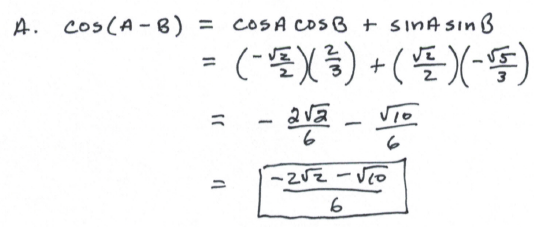 A. cos(A-B) = cosA cosB + sinA sinB
= (-√2/2)(2/3) + (√2/2)(-√5/3)
= - 2√2/6 - √10/6
= -2√2 - √10/6